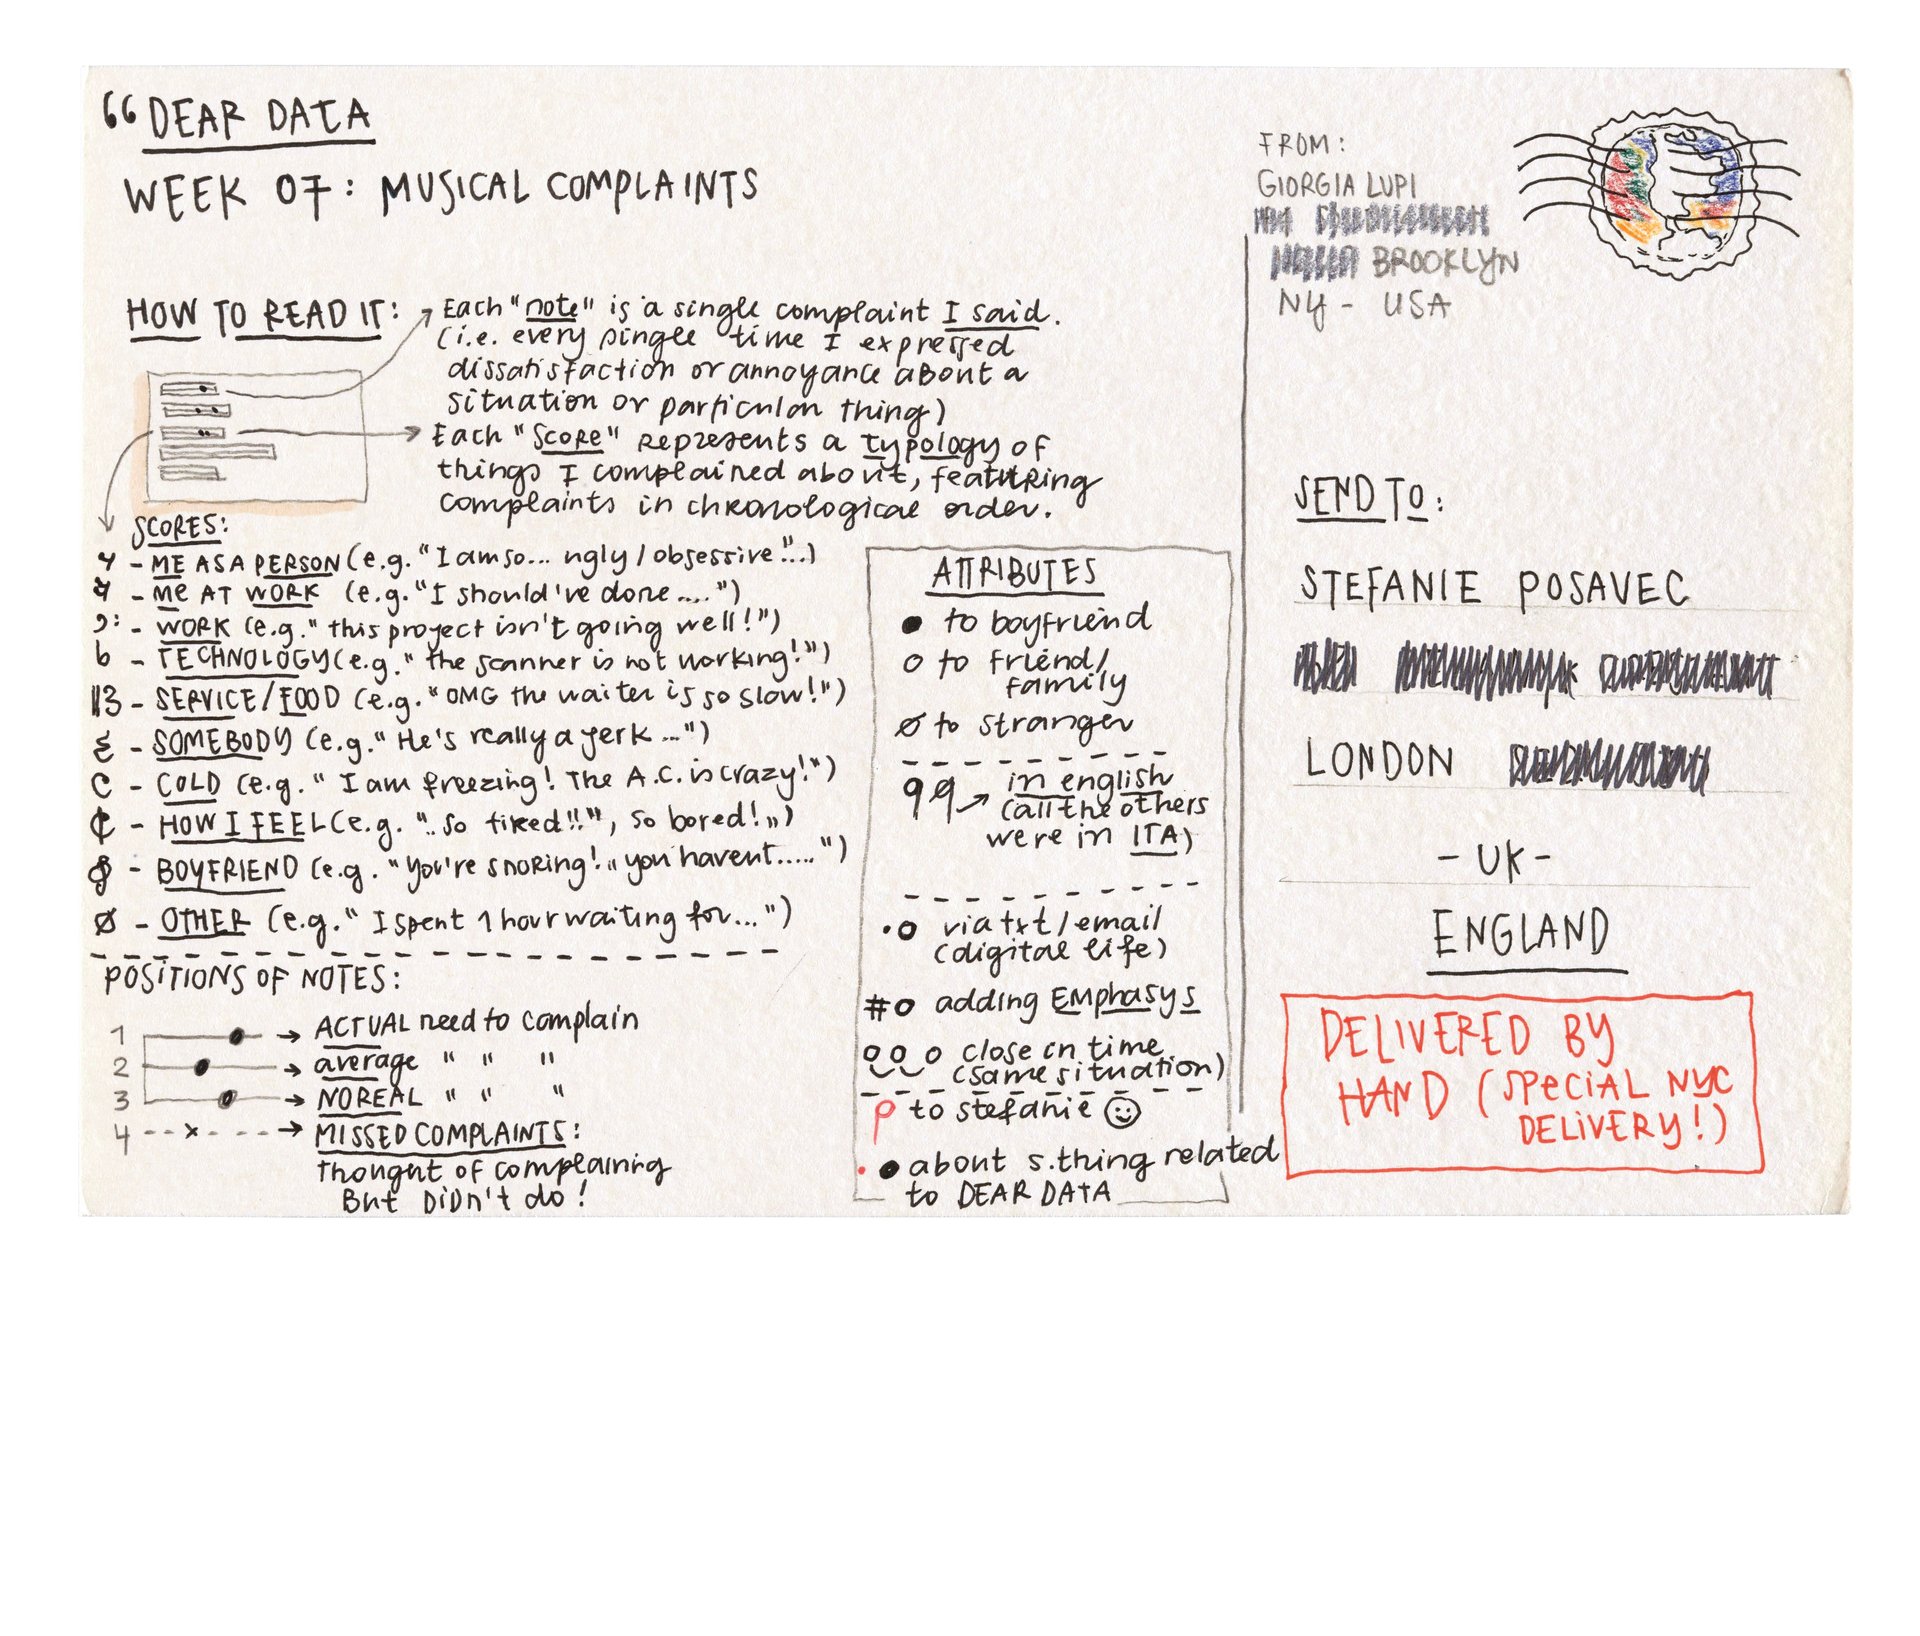 DEAR DATA
WEEK 07: MUSICAL COMPLAINTS
HOW TO READ IT:
Each "note" is a single complaint I said.
(i.e. every single time I expressed
dissatisfaction or annoyance about a
situation or particular thing)
Each "score" represents a typology of
things I complained about, featuring
complaints in chronological order.
SCORES:
- ME AS A PERSON (e.g. "I am so... ugly / obsessive!"...)
- Me AT WORK (e.g. "I should've done ....")
- WORK (e.g. "this project isn't going well!")
- TECHNOLOGY (e.g. "the scanner is not working!")
- SERVICE/FOOD (e.g. "OMG the waiter is so slow!")
- SOMEBODY (e.g. "He's really a jerk ...")
- COLD (e.g. "I am freezing! The A.C. is crazy!")
- HOW I FEEL (e.g. "..so tired!!", so bored!")
- BOYFRIEND (e.g. "You're snoring!" "you havent.....")
- OTHER (e.g. "I spent 1 hour waiting for...")
POSITIONS OF NOTES:
1 → ACTUAL need to complain
2 → average " " "
3 → NO REAL " " "
4 --x--- → MISSED COMPLAINTS:
Thought of complaining
But DiDn't do!
ATTRIBUTES
to boyfriend
to friend/
family
to stranger
in english
(all the others
were in ITA)
via txt / email
(digital life)
#o adding EMphasys
close in time
(same situation)
to stefanie ☺
about s.thing related
to DEAR DATA
FROM:
GIORGIA LUPI
BROOKLYN
NY - USA
SEND TO:
STEFANIE POSAVEC
LONDON
- UK -
ENGLAND
DELIVERED BY
HAND (SPECIAL NYC
DELIVERY!)